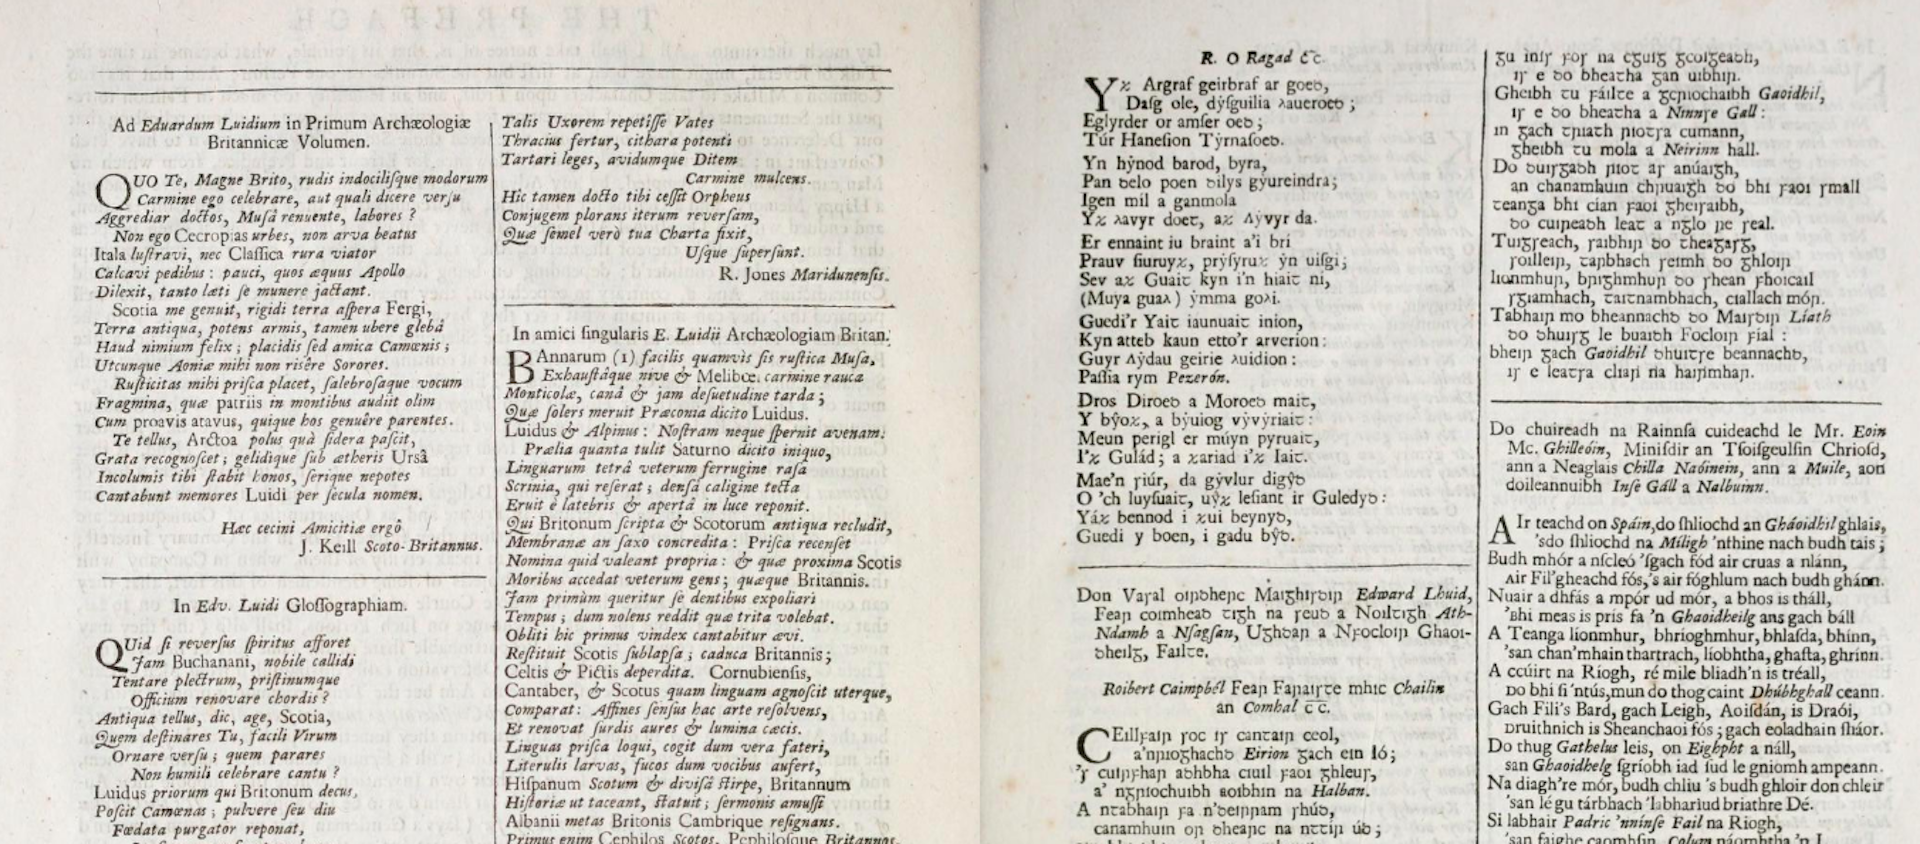 Ad Eduardum Luidium in Primum Archæologiæ
Britannicæ Volumen.
QUO Te, Magne Brito, rudis indociliſque modorum
Carmine ego celebrare, aut quali dicere verſu
Aggrediar doctos, Muſâ renuente, labores ?
Non ego Cecropias urbes, non arva beatus
Itala luſtravi, nec Claſſica rura viator
Calcavi pedibus : pauci, quos æquus Apollo
Dilexit, tanto læti ſe munere jactant.
Scotia me genuit, rigidi terra aſpera Fergi,
Terra antiqua, potens armis, tamen ubere glebâ
Haud nimium felix ; placidis ſed amica Camœnis ;
Utcunque Aoniæ mihi non risêre Sorores.
Ruſticitas mihi priſca placet, ſalebroſaque vocum
Fragmina, quæ patriis in montibus audiit olim
Cum proavis atavus, quique hos genuêre parentes.
Te tellus, Arctoa polus quà ſidera paſcit,
Grata recognoſcet ; gelidique ſub ætheris Ursâ
Incolumis tibi ſtabit honos, ſerique nepotes
Cantabunt memores Luidi per ſecula nomen.
Hæc cecini Amicitiæ ergô
J. Keill Scoto-Britannus.
In Edv. Luidi Gloſſographiam.
QUid ſi reverſus ſpiritus afforet
Jam Buchanani, nobile callidi
Tentare plectrum, priſtinumque
Officium renovare chordis ?
Antiqua tellus, dic, age, Scotia,
Quem deſtinares Tu, facili Virum
Ornare verſu ; quem parares
Non humili celebrare cantu ?
Luidus priorum qui Britonum decus,
Poſcit Camœnas ; pulvere ſeu diu
Fœdata purgator reponat,
Talis Uxorem repetiſſe Vates
Thracius fertur, citharâ potenti
Tartari leges, avidumque Ditem
Carmine mulcens.
Hic tamen docto tibi ceſſit Orpheus
Conjugem plorans iterum reverſam,
Quæ ſemel verò tua Charta fixit,
Uſque ſuperſunt.
R. Jones Maridunenſis.
In amici ſingularis E. Luidii Archæologiam Britan:
BAnnarum (1) facilis quamvis ſis ruſtica Muſa,
Exhauſtáque nive & Melibœi carmine rauca
Monticolæ, canâ & jam deſuetudine tarda ;
Quæ ſolers meruit Præconia dicito Luidus.
Luidus & Alpinus : Noſtram neque ſpernit avenam.
Prælia quanta tulit Saturno dicito iniquo,
Linguarum tetrâ veterum ferrugine raſa
Scrinia, qui referat ; denſâ caligine tecta
Eruit è latebris & apertâ in luce reponit.
Qui Britonum ſcripta & Scotorum antiqua recludit,
Membranæ an ſaxo concredita : Priſca recenſet
Nomina quid valeant propria : & quæ proxima Scotis
Moribus accedat veterum gens ; quæque Britannis.
Jam primùm queritur ſe dentibus expoliari
Tempus ; dum nolens reddit quæ trita volebat.
Obliti hic primus vindex cantabitur ævi.
Reſtituit Scotis ſublapſa ; caduca Britannis ;
Celtis & Pictis deperdita. Cornubienſis,
Cantaber, & Scotus quam linguam agnoſcit uterque,
Comparat : Affines ſenſus hac arte reſolvens,
Et renovat ſurdis aures & lumina cæcis.
Linguas priſca loqui, cogit dum vera fateri,
Literulis larvas, fucos dum vocibus aufert,
Hiſpanum Scotum & diviſâ ſtirpe, Britannum
Hiſtoriæ ut taceant, ſtatuit ; ſermonis amuſſi
Albanii metas Britonis Cambrique reſignans.
Primus enim Cephilos Scotos, Pephiloſque Britannos
R. O Ragad &c.
Yχ Argraf geirbraf ar goeꝺ,
Daſg ole, dŷſguilia λaueroeꝺ ;
Eglyrder or amſer oeꝺ ;
Tûr Haneſion Tŷrnaſoeꝺ.
Yn hŷnod barod, byra,
Pan ꝺelo poen ꝺilys gŷureindra ;
Igen mil a ganmola
Yχ λavyr doeτ, aχ Λŷvyr da.
Er ennaint iu braint a'i bri
Prauv ſiuruyχ, prŷſyruχ ŷn uiſgi ;
Sev aχ Guaiτ kyn i'n hiaiτ ni,
(Muya guaλ) ŷmma goλi.
Gueꝺi'r Yaiτ iaunuaiτ inion,
Kyn atteb kaun etto'r arverion :
Guyr Λŷdau geirie λuidion :
Paſſia rym Pezerón.
Dros Diroeꝺ a Moroeꝺ maiτ,
Y bŷoχ, a bŷuiog vŷvŷriaiτ :
Meun perigl er múyn pyruaiτ,
I'χ Gulád ; a χariad i'χ Iaiτ.
Mae'n ſiúr, da gŷvlur digŷꝺ
O 'ch luyſuaiτ, uŷχ leſiant ir Guledyꝺ :
Yáχ bennod i χui beynyꝺ,
Guedi y boen, i gadu bŷꝺ.
Don Vaꞃal oiꞃꝺheꞃc Maiᵹhiꞅꝺiꞃ Edward Lhuid,
Feaꞃ coimheaꝺ τiᵹh na ꞅeuꝺ a Noilτiᵹh Ath-
Ndamh a Nſagſan, Uᵹhꝺaꞃ a Nꞅocloiꞃ Ghaoi-
ꝺheilᵹ, Failτe.
Roibert Caimpbél Feaꞃ Faꞃaiꞅτe mhic Chailin
an Comhal &c.
CEillꞅaiꞃ ꞅoc iꞅ canτaiꞃ ceol,
a'nꞃioᵹhachꝺ Eirion ᵹach ein ló ;
'ꞅ cuiꞃꞅhaꞃ aꝺhbha ciuil ꞅaoi ᵹhleuꞅ,
a' nᵹꞃiochuibh aoibhin na Halban.
A nτabhaiꞃ ꞅa n'ꝺeiꞃꞃam ꞅhúꝺ,
canamhuin oꞃ ꝺheaꞃc na nττiꞃ úꝺ ;
ᵹu iniꞅ ꞅoꞅ na cᵹuiᵹ ᵹcoiᵹeaꝺh,
iꞅ e ꝺo bheaτha ᵹan uibhiꞃ.
Gheibh τu ꞅáilτe a ᵹcꞃiochaibh Gaoidhil,
iꞅ e ꝺo bheaτha a Ninnſe Gall :
in ᵹach τꞃiaτh ꞃioτꞃa cumann,
ᵹheibh τu mola a Neirinn hall.
Do ꝺuiꞅᵹaꝺh ꞃioτ aꞅ anúaiᵹh,
an chanamhuin chꞃuaiᵹh ꝺo bhi ꞅaoi ꞅmall
τeanᵹa bhi cían ꞅaoi ᵹheiꞅaibh,
ꝺo cuiꞃeabh leaτ a nᵹlo ꞃe ꞃeal.
Tuiᵹꞅeach, ꞅaibhiꞃ ꝺo τheaᵹaꞅᵹ,
ꞅoilleiꞃ, τaꞃbhach ꞅeimh ꝺo ᵹhloiꞃ
líonmhuꞃ, bꞃiᵹhmhuꞃ ꝺo ꞅhean ꞅhocail
ꞅᵹiamhach, τaiτnambhach, ciallach móꞃ.
Tabhaiꞃ mo bheannachꝺ ꝺo Maiꞅꝺiꞃ Líath
ꝺo ꝺhuiꞅᵹ le buaiꝺh Focloiꞃ ꞅial :
bheiꞃ ᵹach Gaoidhil ꝺhuiτꞅe beannachꝺ,
iꞅ e leaτꞅa
Do chuireadh na Rainnſa cuideachd le Mr. Eoin
Mc. Ghilleóin, Miniſdir an Tſoiſgeulſin Chrioſd,
ann a Neaglais Chilla Naóinein, ann a Muile, aon
doileannuibh Inſe Gáll a Nalbuinn.
AIr teachd on Spáin, do ſhliochd an Gháoidhil ghlais,
'sdo ſhliochd na Míligh 'nthine nach budh tais ;
Budh mhór a nſcleó 'ſgach fód air cruas a nlánn,
Air Fil'gheachd fós,'s air fóghlum nach budh ghánn.
Nuair a dhfás a mpór ud mór, a bhos is tháll,
'Bhi meas is prís fa 'n Ghaoidheilg ans gach báll
A Teanga líonmhur, bhríoghmhur, bhlaſda, bhínn,
'san chan'mhain thartrach, líobhtha, ghaſta, ghrínn.
A ccúirt na Ríogh, ré mile bliadh'n is tréall,
Do bhi ſi 'ntús, mun do thog caint Dhúbhghall ceann.
Gach Fili's Bard, gach Leigh, Aoiſdán, is Draói,
Druithnich is Sheanchaoi fós ; gach eoladhain ſháor.
Do thug Gathelus leis, on Eighpht a náll,
san Ghaoidhelg ſgríobh iad ſud le gniomh ampeann.
Na diagh're mór, budh chliu 's budh ghloir don chleir
'san lé gu tárbhach 'labhariud briathre Dé.
Si labhair Padric 'nnínſe Fail na Riogh,
'san faighe caomhſin, Colum náomhtha 'n I.